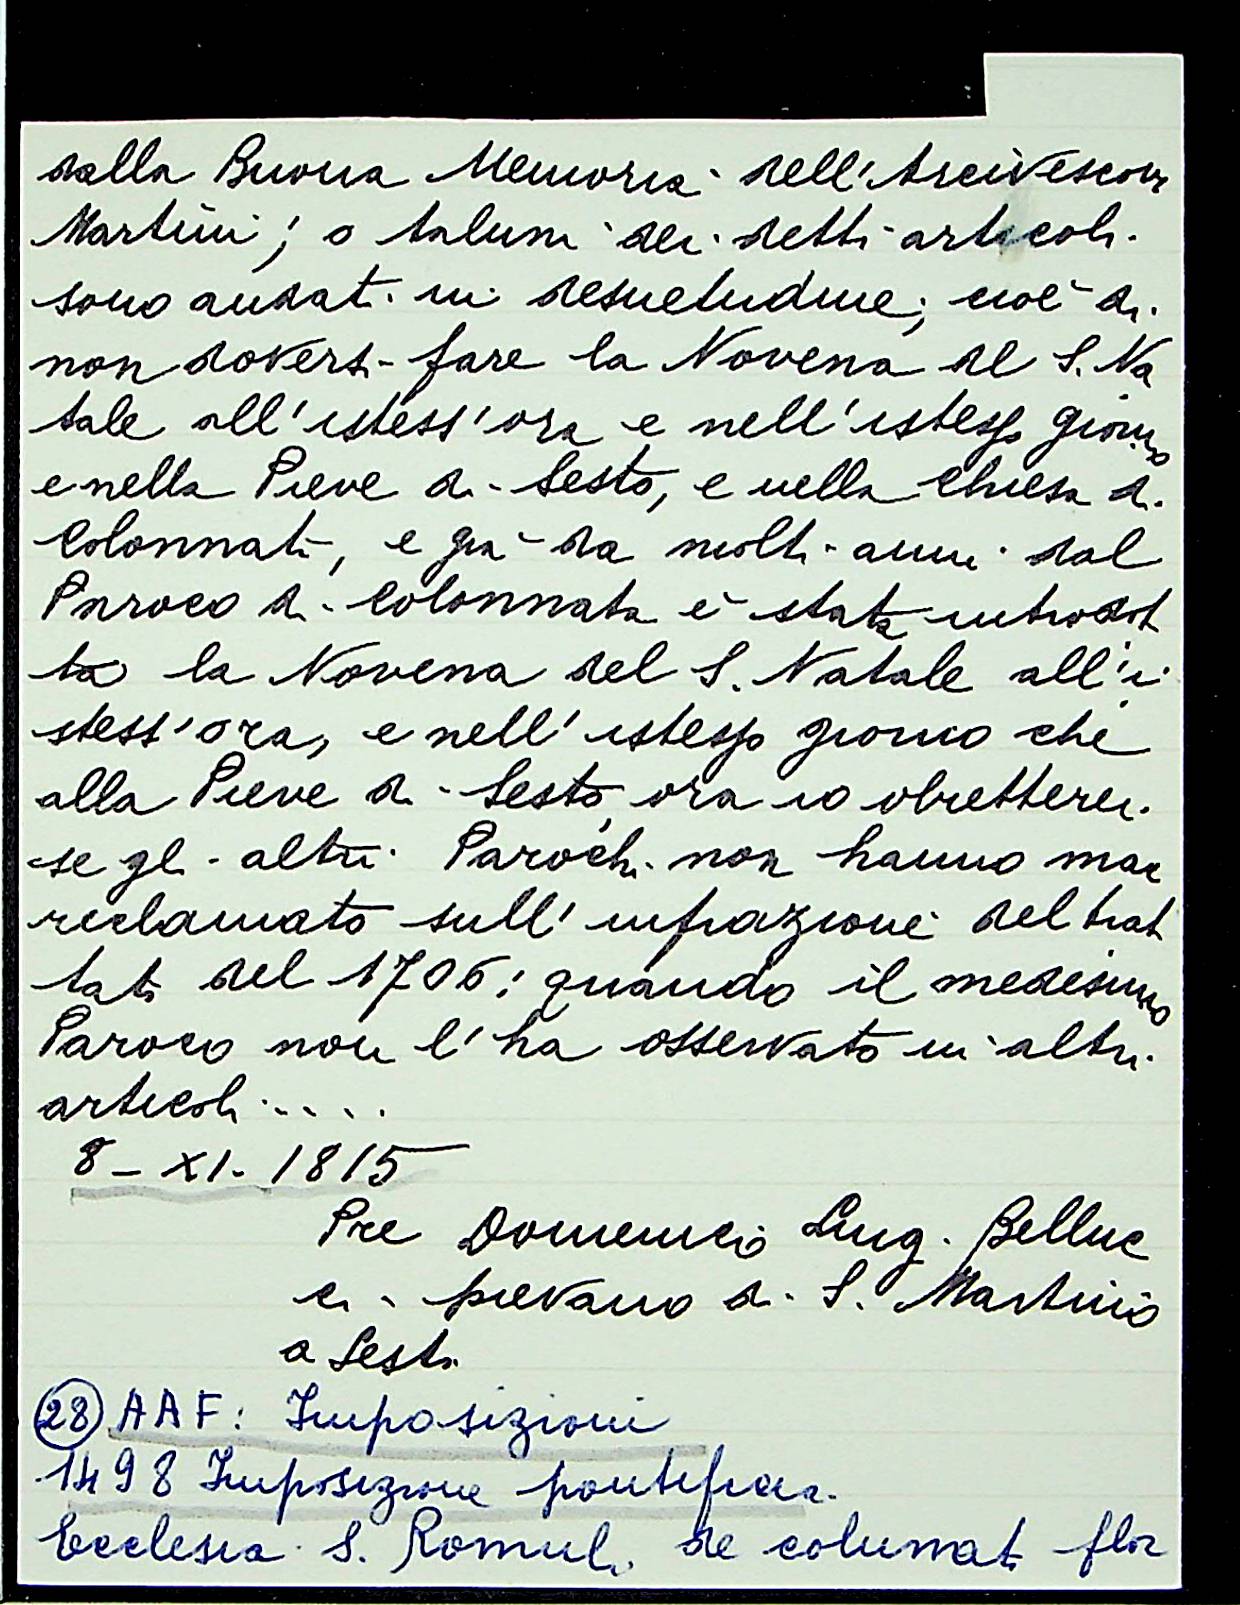 dalla Buona Memoria dell'Arcivescovo
Martini; o taluni dei detti articoli
sono andati in desuetudine; cioè di
non doversi fare la Novena del S. Na
tale all'istess'ora e nell'istesso giorno
e nella Pieve di Sesto, e nella Chiesa di
Colonnata, e già da molti anni dal
Paroco di Colonnata è stata introdot
ta la Novena del S. Natale all'i
stess'ora, e nell'istesso giorno che
alla Pieve di Sesto, ora io obietterei
se gli altri Parochi non hanno mai
reclamato sull'infrazione del trat
tato del 1706; quando il medesimo
Paroco non l'ha osservato in altri
articoli .....
8-XI-1815
Pre Domenico Luig. Belluc
ci pievano di S. Martino
a Sesto
(28) AAF: Imposizioni
1498 Imposizione pontificia
Ecclesia S. Romuli de columnata flor